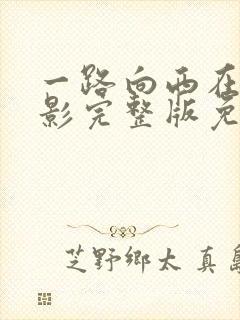 一路向西在
影完整版免
芝野鄉太真島